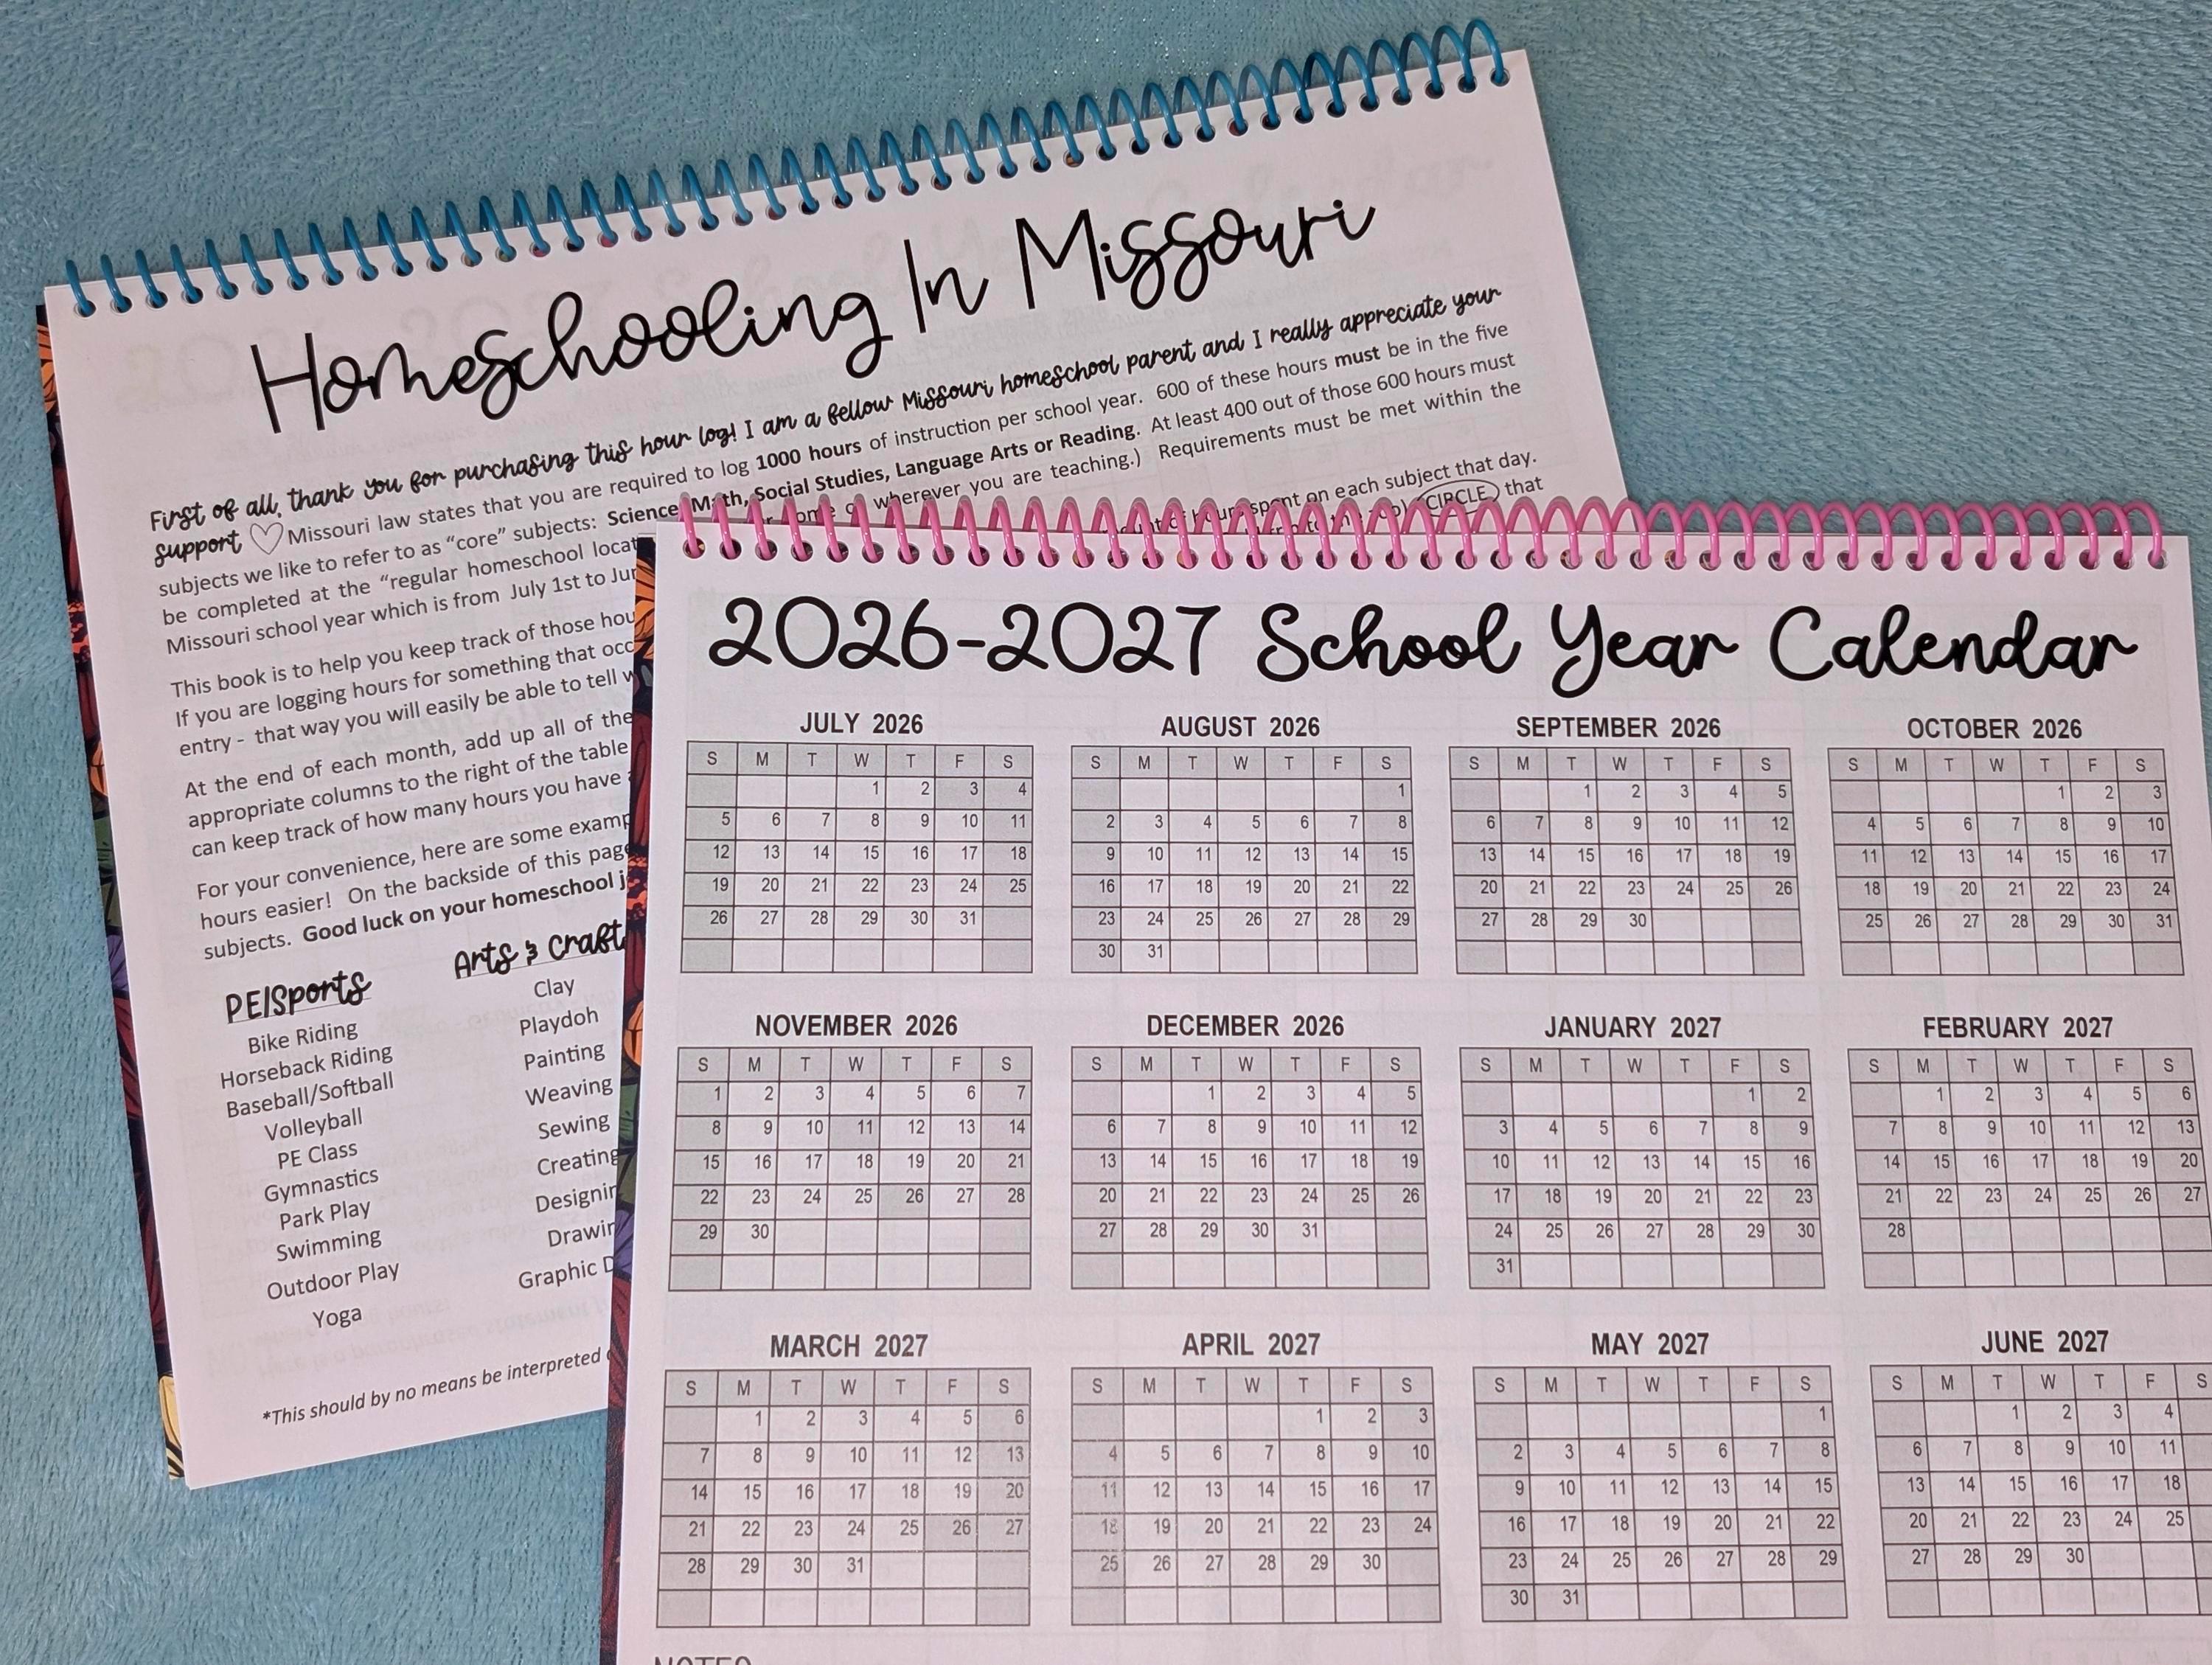 Homeschooling In Missouri
First of all, thank you for purchasing this hour log! I am a fellow Missouri homeschool parent and I really appreciate your
support ♡ Missouri law states that you are required to log 1000 hours of instruction per school year. 600 of these hours must be in the five
subjects we like to refer to as “core” subjects: Science, Math, Social Studies, Language Arts or Reading. At least 400 out of those 600 hours must
be completed at the “regular homeschool wherever you are teaching.) Requirements must be met within the
Missouri school year which is from July 1st to
This book is to help you keep track of those spent on each subject that day.
If you are logging hours for something that CIRCLE that
entry - that way you will easily be able to tell
At the end of each month, add up all of the
appropriate columns to the right of the table
can keep track of how many hours you have
For your convenience, here are some
hours easier! On the backside of this
subjects. Good luck on your homeschool
PE|Sports
Bike Riding
Horseback Riding
Baseball/Softball
Volleyball
PE Class
Gymnastics
Park Play
Swimming
Outdoor Play
Yoga
Arts & Craft
Clay
Playdoh
Painting
Weaving
Sewing
Creating
Graphic
*This should by no means be interpreted
2026-2027 School Year Calendar
JULY 2026
S M T W T F S
1 2 3 4
5 6 7 8 9 10 11
12 13 14 15 16 17 18
19 20 21 22 23 24 25
26 27 28 29 30 31
AUGUST 2026
S M T W T F S
1
2 3 4 5 6 7 8
9 10 11 12 13 14 15
16 17 18 19 20 21 22
23 24 25 26 27 28 29
30 31
SEPTEMBER 2026
S M T W T F S
1 2 3 4 5
6 7 8 9 10 11 12
13 14 15 16 17 18 19
20 21 22 23 24 25 26
27 28 29 30
OCTOBER 2026
S M T W T F S
1 2 3
4 5 6 7 8 9 10
11 12 13 14 15 16 17
18 19 20 21 22 23 24
25 26 27 28 29 30 31
NOVEMBER 2026
S M T W T F S
1 2 3 4 5 6 7
8 9 10 11 12 13 14
15 16 17 18 19 20 21
22 23 24 25 26 27 28
29 30
DECEMBER 2026
S M T W T F S
1 2 3 4 5
6 7 8 9 10 11 12
13 14 15 16 17 18 19
20 21 22 23 24 25 26
27 28 29 30 31
JANUARY 2027
S M T W T F S
1 2
3 4 5 6 7 8 9
10 11 12 13 14 15 16
17 18 19 20 21 22 23
24 25 26 27 28 29 30
31
FEBRUARY 2027
S M T W T F S
1 2 3 4 5 6
7 8 9 10 11 12 13
14 15 16 17 18 19 20
21 22 23 24 25 26 27
28
MARCH 2027
S M T W T F S
1 2 3 4 5 6
7 8 9 10 11 12 13
14 15 16 17 18 19 20
21 22 23 24 25 26 27
28 29 30 31
APRIL 2027
S M T W T F S
1 2 3
4 5 6 7 8 9 10
11 12 13 14 15 16 17
18 19 20 21 22 23 24
25 26 27 28 29 30
MAY 2027
S M T W T F S
1
2 3 4 5 6 7 8
9 10 11 12 13 14 15
16 17 18 19 20 21 22
23 24 25 26 27 28 29
30 31
JUNE 2027
S M T W T F S
1 2 3 4
6 7 8 9 10 11
13 14 15 16 17 18
20 21 22 23 24 25
27 28 29 30
NOTES